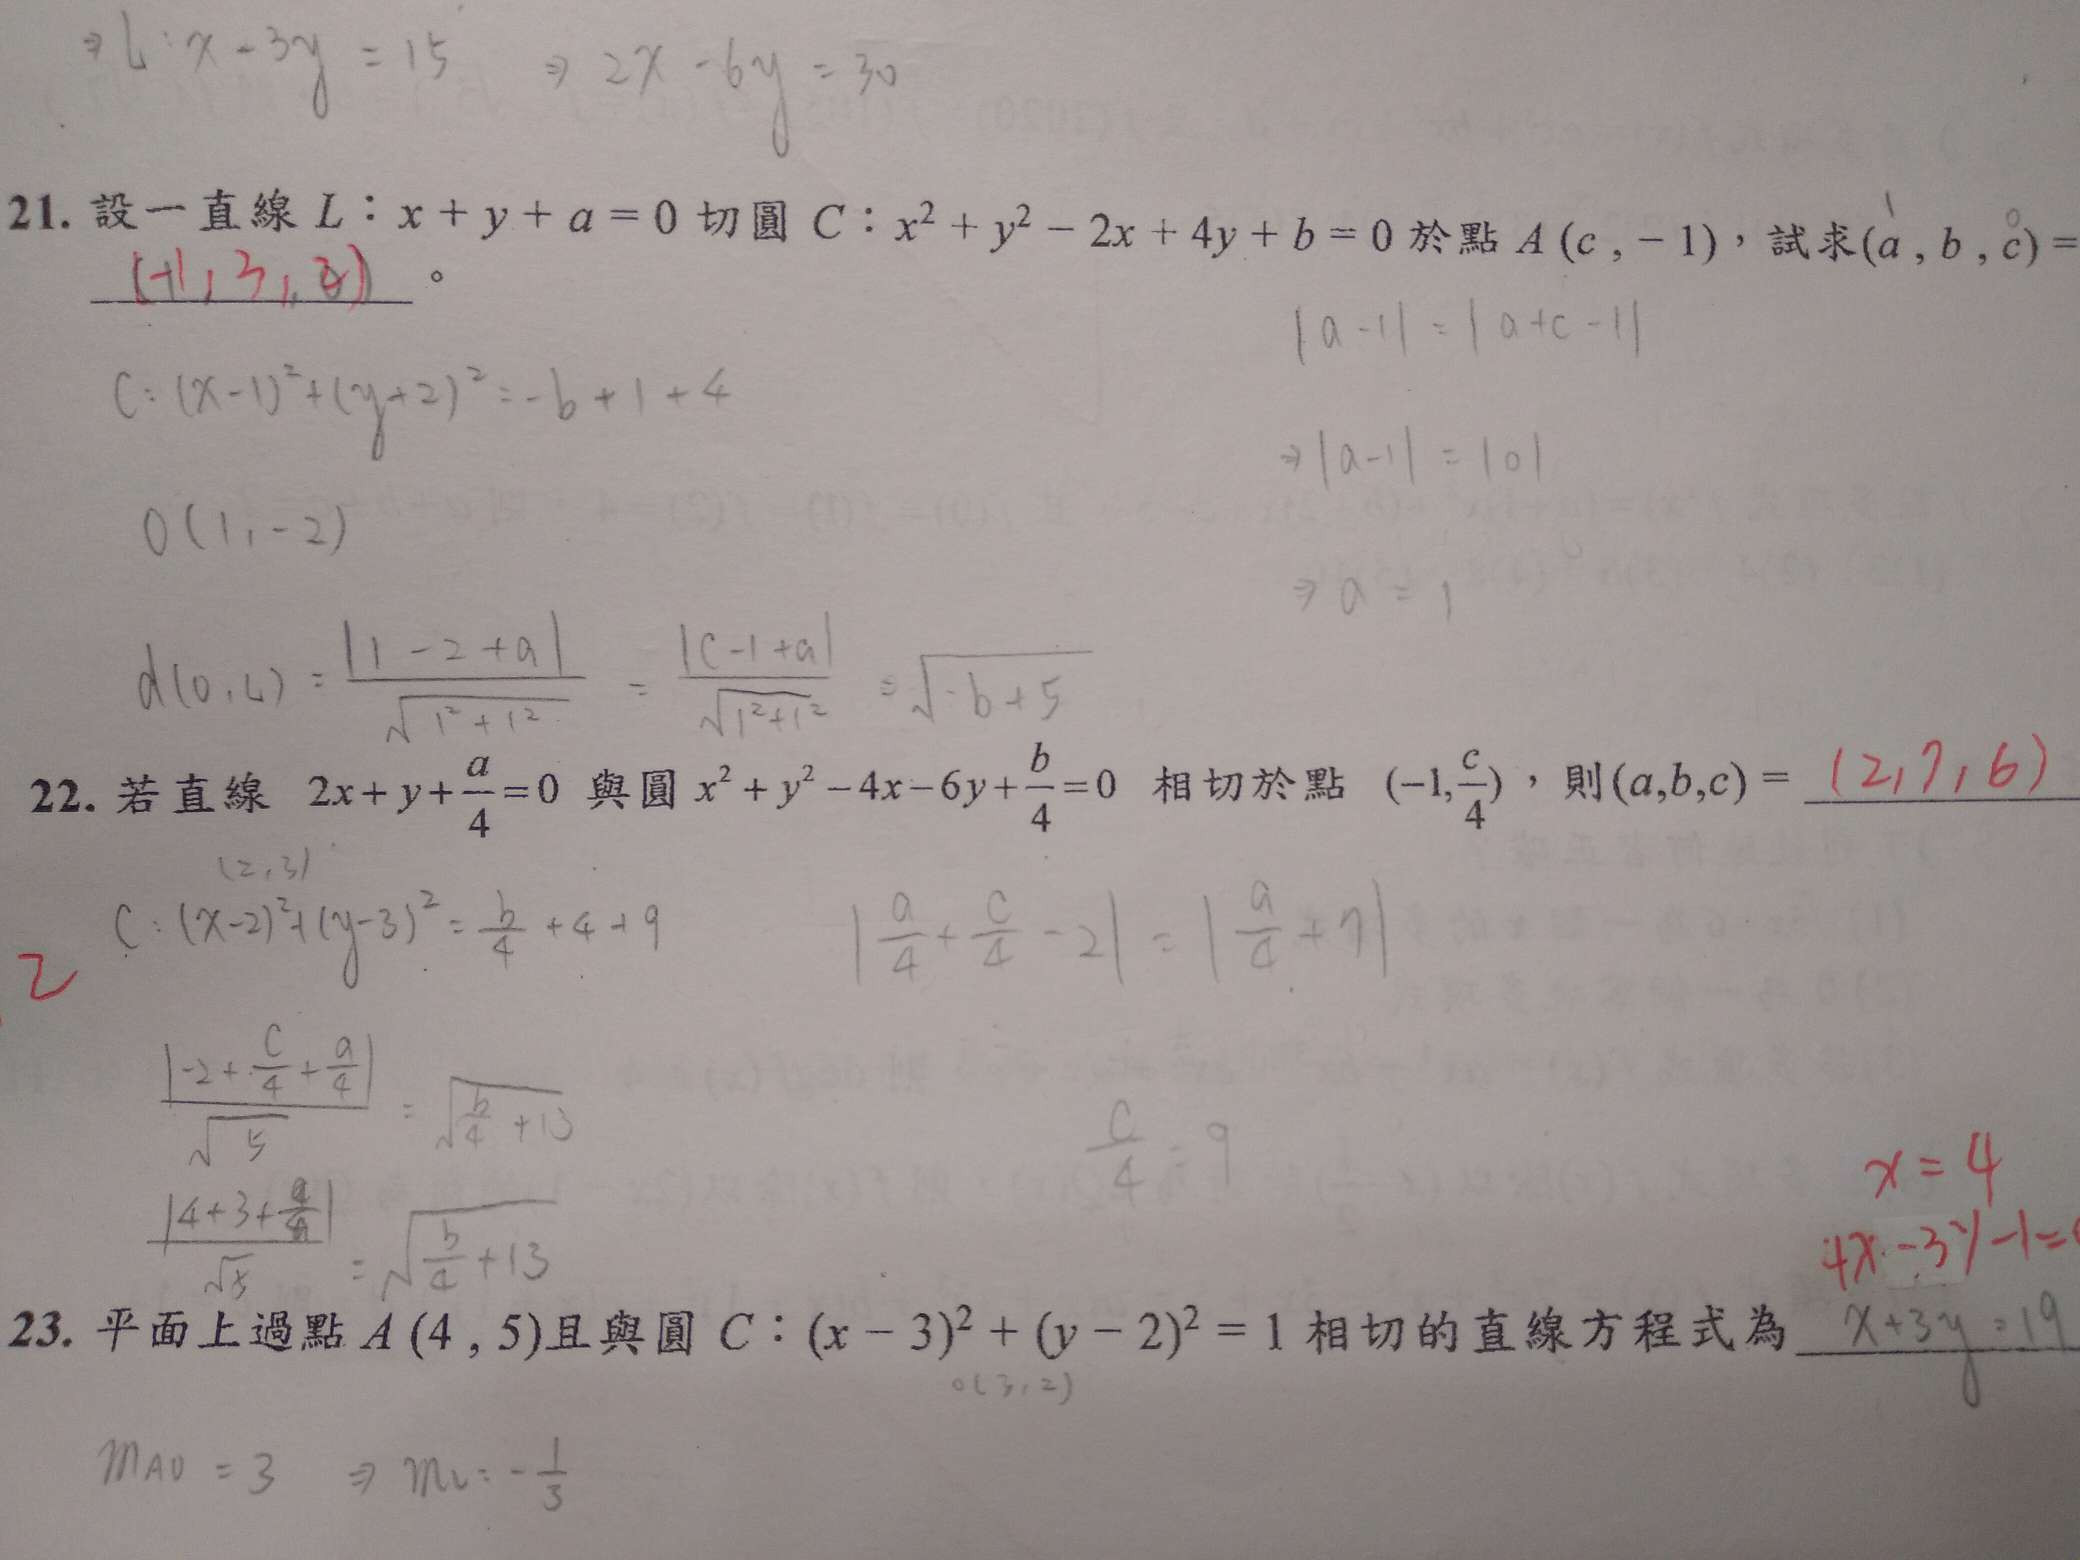 ⇒ L: x - 3y = 15 ⇒ 2x - 6y = 30
21. 設一直線 L：x + y + a = 0 切圓 C：x² + y² − 2x + 4y + b = 0 於點 A (c , − 1)，試求(a , b , c) =
1 0
(-1, 3, 2) 。
|a - 1| = |a + c - 1|
C: (x-1)² + (y+2)² = -b + 1 + 4
⇒ |a-1| = |0|
O(1, -2)
⇒ a = 1
d(O, L) = |1 - 2 + a| / √(1² + 1²) = |c - 1 + a| / √(1² + 1²) = √(-b + 5)
22. 若直線 2x + y + a/4 = 0 與圓 x² + y² − 4x − 6y + b/4 = 0 相切於點 (−1, c/4)，則(a,b,c) = (2, 7, 6)
(2, 3)
C: (x-2)² + (y-3)² = b/4 + 4 + 9 |a/4 + c/4 - 2| = |a/4 + 7|
2
|-2 + c/4 + a/4| / √5 = √(b/4 + 13)
c/4 = 9
x = 4
|4 + 3 + a/4| / √5 = √(b/4 + 13)
4x - 3y - 1 = 0
23. 平面上過點 A (4 , 5)且與圓 C：(x − 3)² + (y − 2)² = 1 相切的直線方程式為 x + 3y = 19
O(3, 2)
m_AO = 3 ⇒ m_L = -1/3